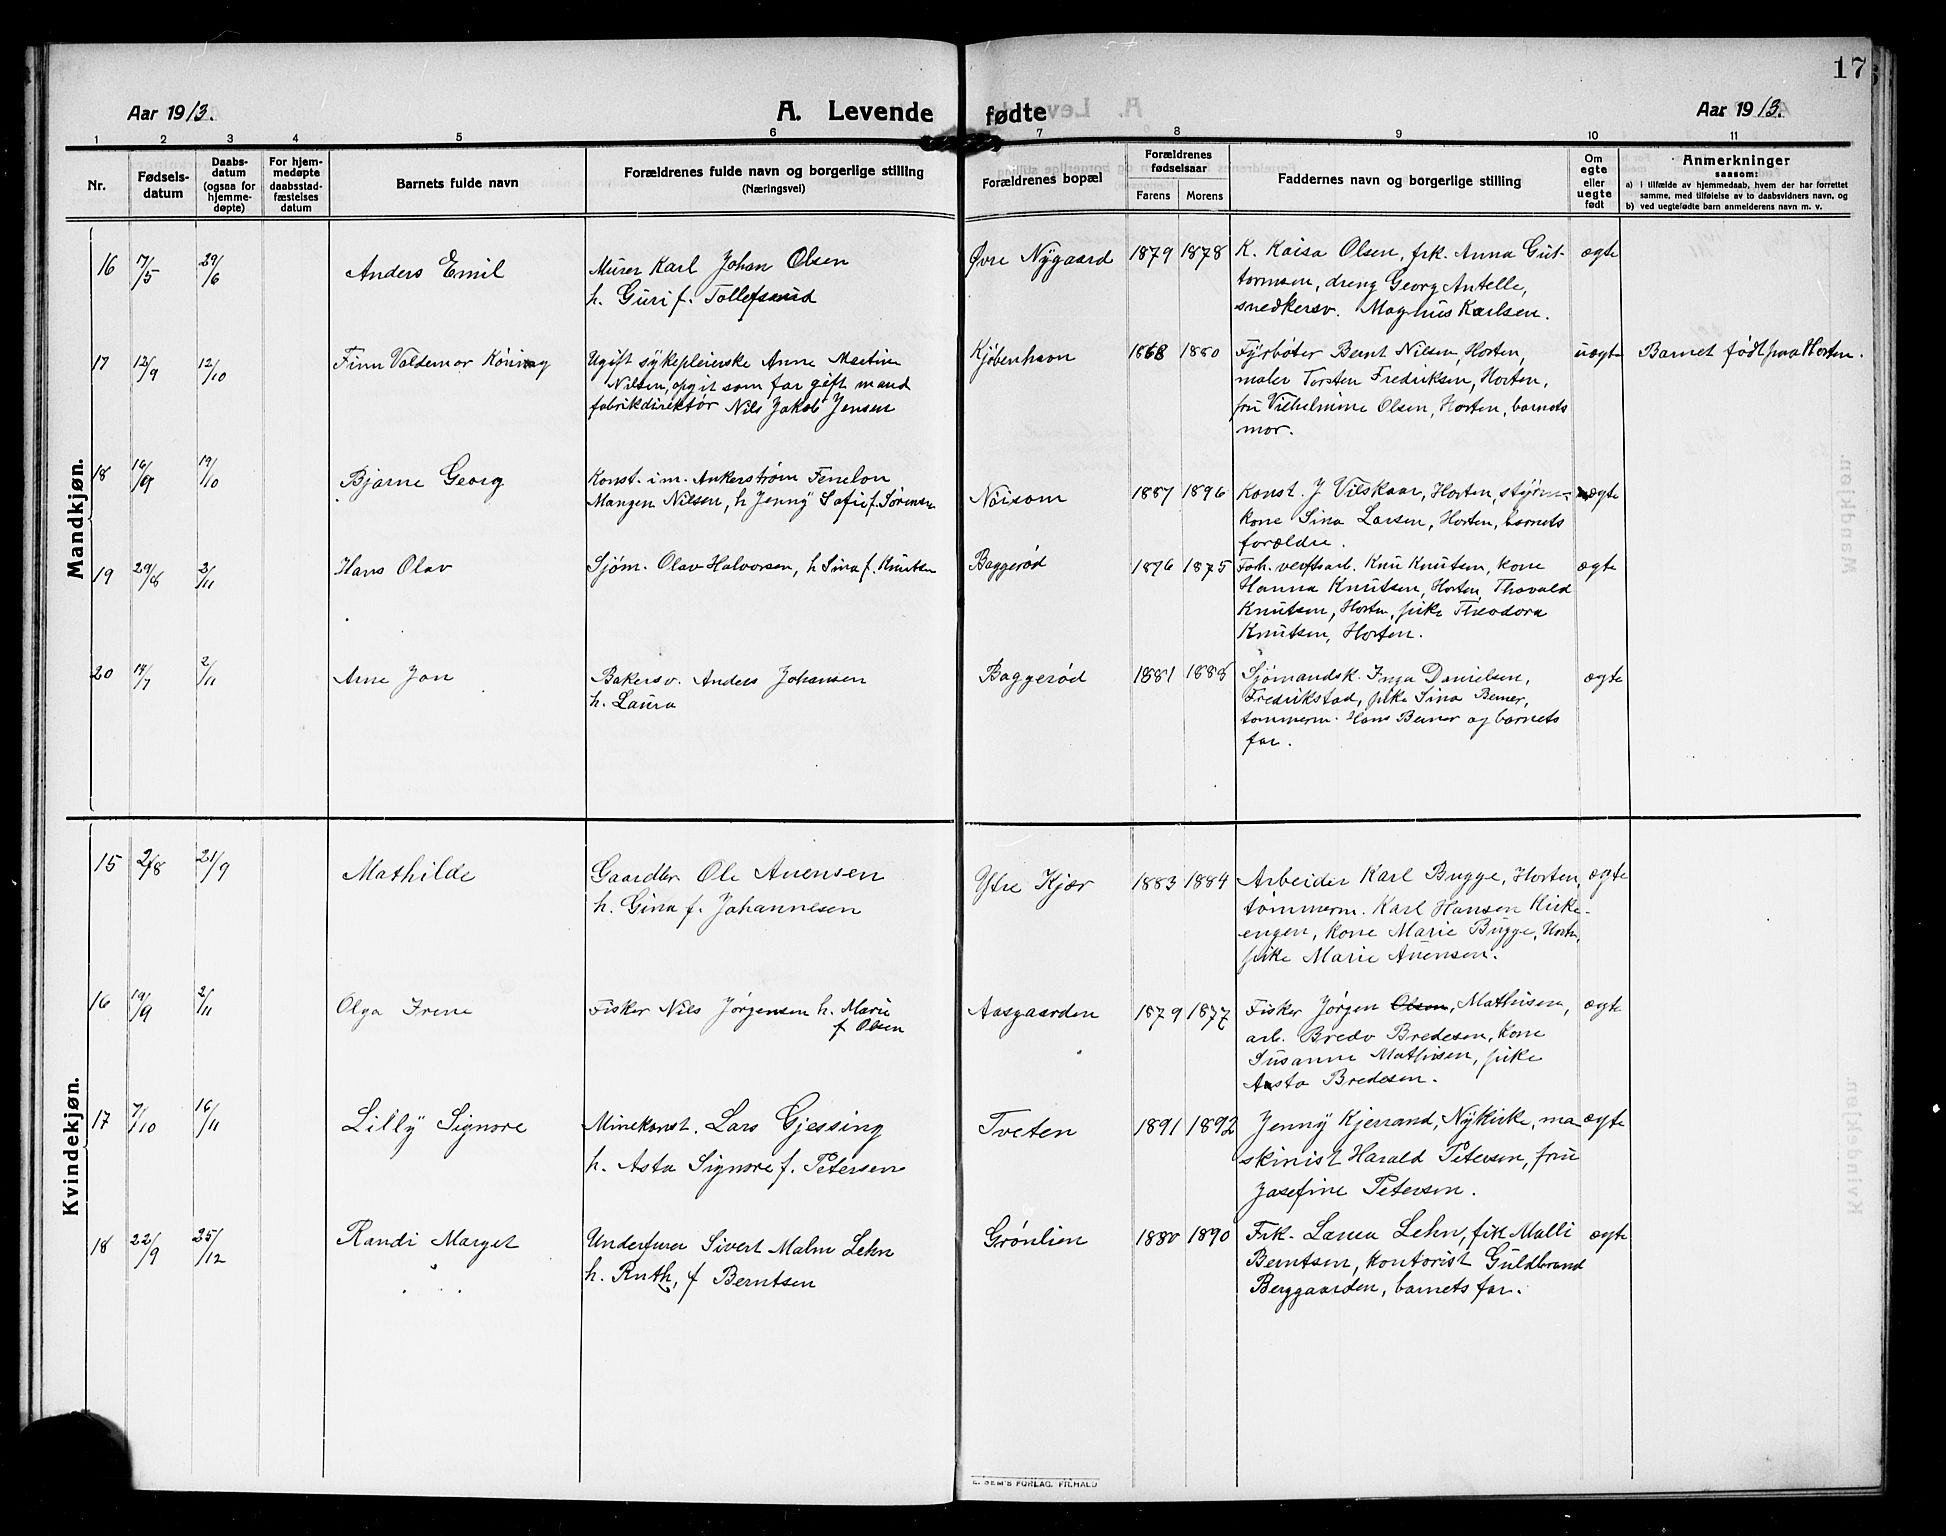 17
Aar 1913.
A. Levende fødte
Aar 1913.
1 2 3 4 5 6 7 8 9 10 11
Nr.
Fødsels-
datum
Daabs-
datum
(ogsaa for
hjemme-
døpte)
For hjem-
medøpte
daabsstad-
fæstelses
datum
Barnets fulde navn
Forældrenes fulde navn og borgerlige stilling
(Næringsvei)
Forældrenes bopæl
Forældrenes
fødselsaar
Farens Morens
Faddernes navn og borgerlige stilling
Om
egte
eller
uegte
født
Anmerkninger
saasom:
a) i tilfælde av hjemmedaab, hvem der har forrettet
samme, med tilføielse av to daabsvidners navn, og
b) ved uegtefødte barn anmelderens navn m. v.
Mandkjøn.
16 7/5 29/6 Anders Emil
Murer Karl Johan Olsen
h. Guri f. Tollefsrud
Øvre Nygaard 1879 1878
K. Kaisa Olsen, frk. Anna Gut-
tormsen, dreng Georg Antelle,
snedkersv. Magnus Karlsen.
ægte
17 12/9 12/10 Finn Valdemar Køninag
Ugift sykepleierske Anne Martine
Nilsen, opgit som far gift mand
fabrikdirektør Nils Jakob Jensen
Kjøbenhavn 1868 1880
Fyrbøter Bernt Nilsen, Horten,
maler Torsten Fredriksen, Horten,
fru Vilhelmine Olsen, Horten, barnets
mor.
uægte Barnet født paa Horten.
18 16/9 19/10 Bjarne Georg
Konst. i m. Ankerstrøm Fenelon
Mangen Nilsen, h Jenny Sofie f. Sørensen
Nöisom 1887 1896
Konst. J Vilskaar, Horten, styrm-
kone Sina Larsen, Horten, barnets
forældre.
ægte
19 29/8 2/11 Hans Olav
Sjøm. Olav Halvorsen, h Sina f. Knutsen
Baggerød 1876 1875
Foh. verftsarb. Knu Knutsen, kone
Hanna Knutsen, Horten, Thovald
Knutsen, Horten, pike Theodora
Knutsen, Horten.
ægte
20 14/7 2/11 Arne Jon
Bakersv. Anders Johansen
h. Laura
Baggerød 1881 1888
Sjømandsk. Inga Danielsen,
Fredrikstad, pike Sina Berner,
tømmerm. Hans Berner og barnets
far.
ægte
Kvindekjøn.
15 2/8 21/9 Mathilde
Gaardbr Ole Auensen
h. Gina f. Johannesen
Ytre Kjær 1883 1884
Arbeider Karl Bugge, Horten,
tømmerm. Karl Hansen Kirke-
engen, kone Marie Bugge, Horten,
pike Marie Auensen.
ægte
16 19/9 2/11 Olga Irene
Fisker Nils Jørgensen h. Marie
f Olsen
Aasgaarden 1879 1877
Fisker Jørgen Olsen, Mathisen,
arb. Bredo Bredesen, kone
Susanne Mathisen, pike
Asta Bredesen.
ægte
17 7/10 16/11 Lilly Signore
Minekonst. Lars Gjessing
h. Asta Signore f. Petersen
Tveten 1891 1892
Jenny Kjerrand, Nykirke, ma
skinist Harald Petersen, fru
Josefine Petersen.
ægte
18 22/9 25/12 Randi Marget
Underfurer Sivert Malm Lehn
h. Ruth, f Berntsen
Grønlien 1880 1890
Frk. Laura Lehn, frk Malli
Berntsen, kontorist Guldbrand
Berggaarden, barnets far.
ægte
E. SEM'S FORLAG, FR.HALD